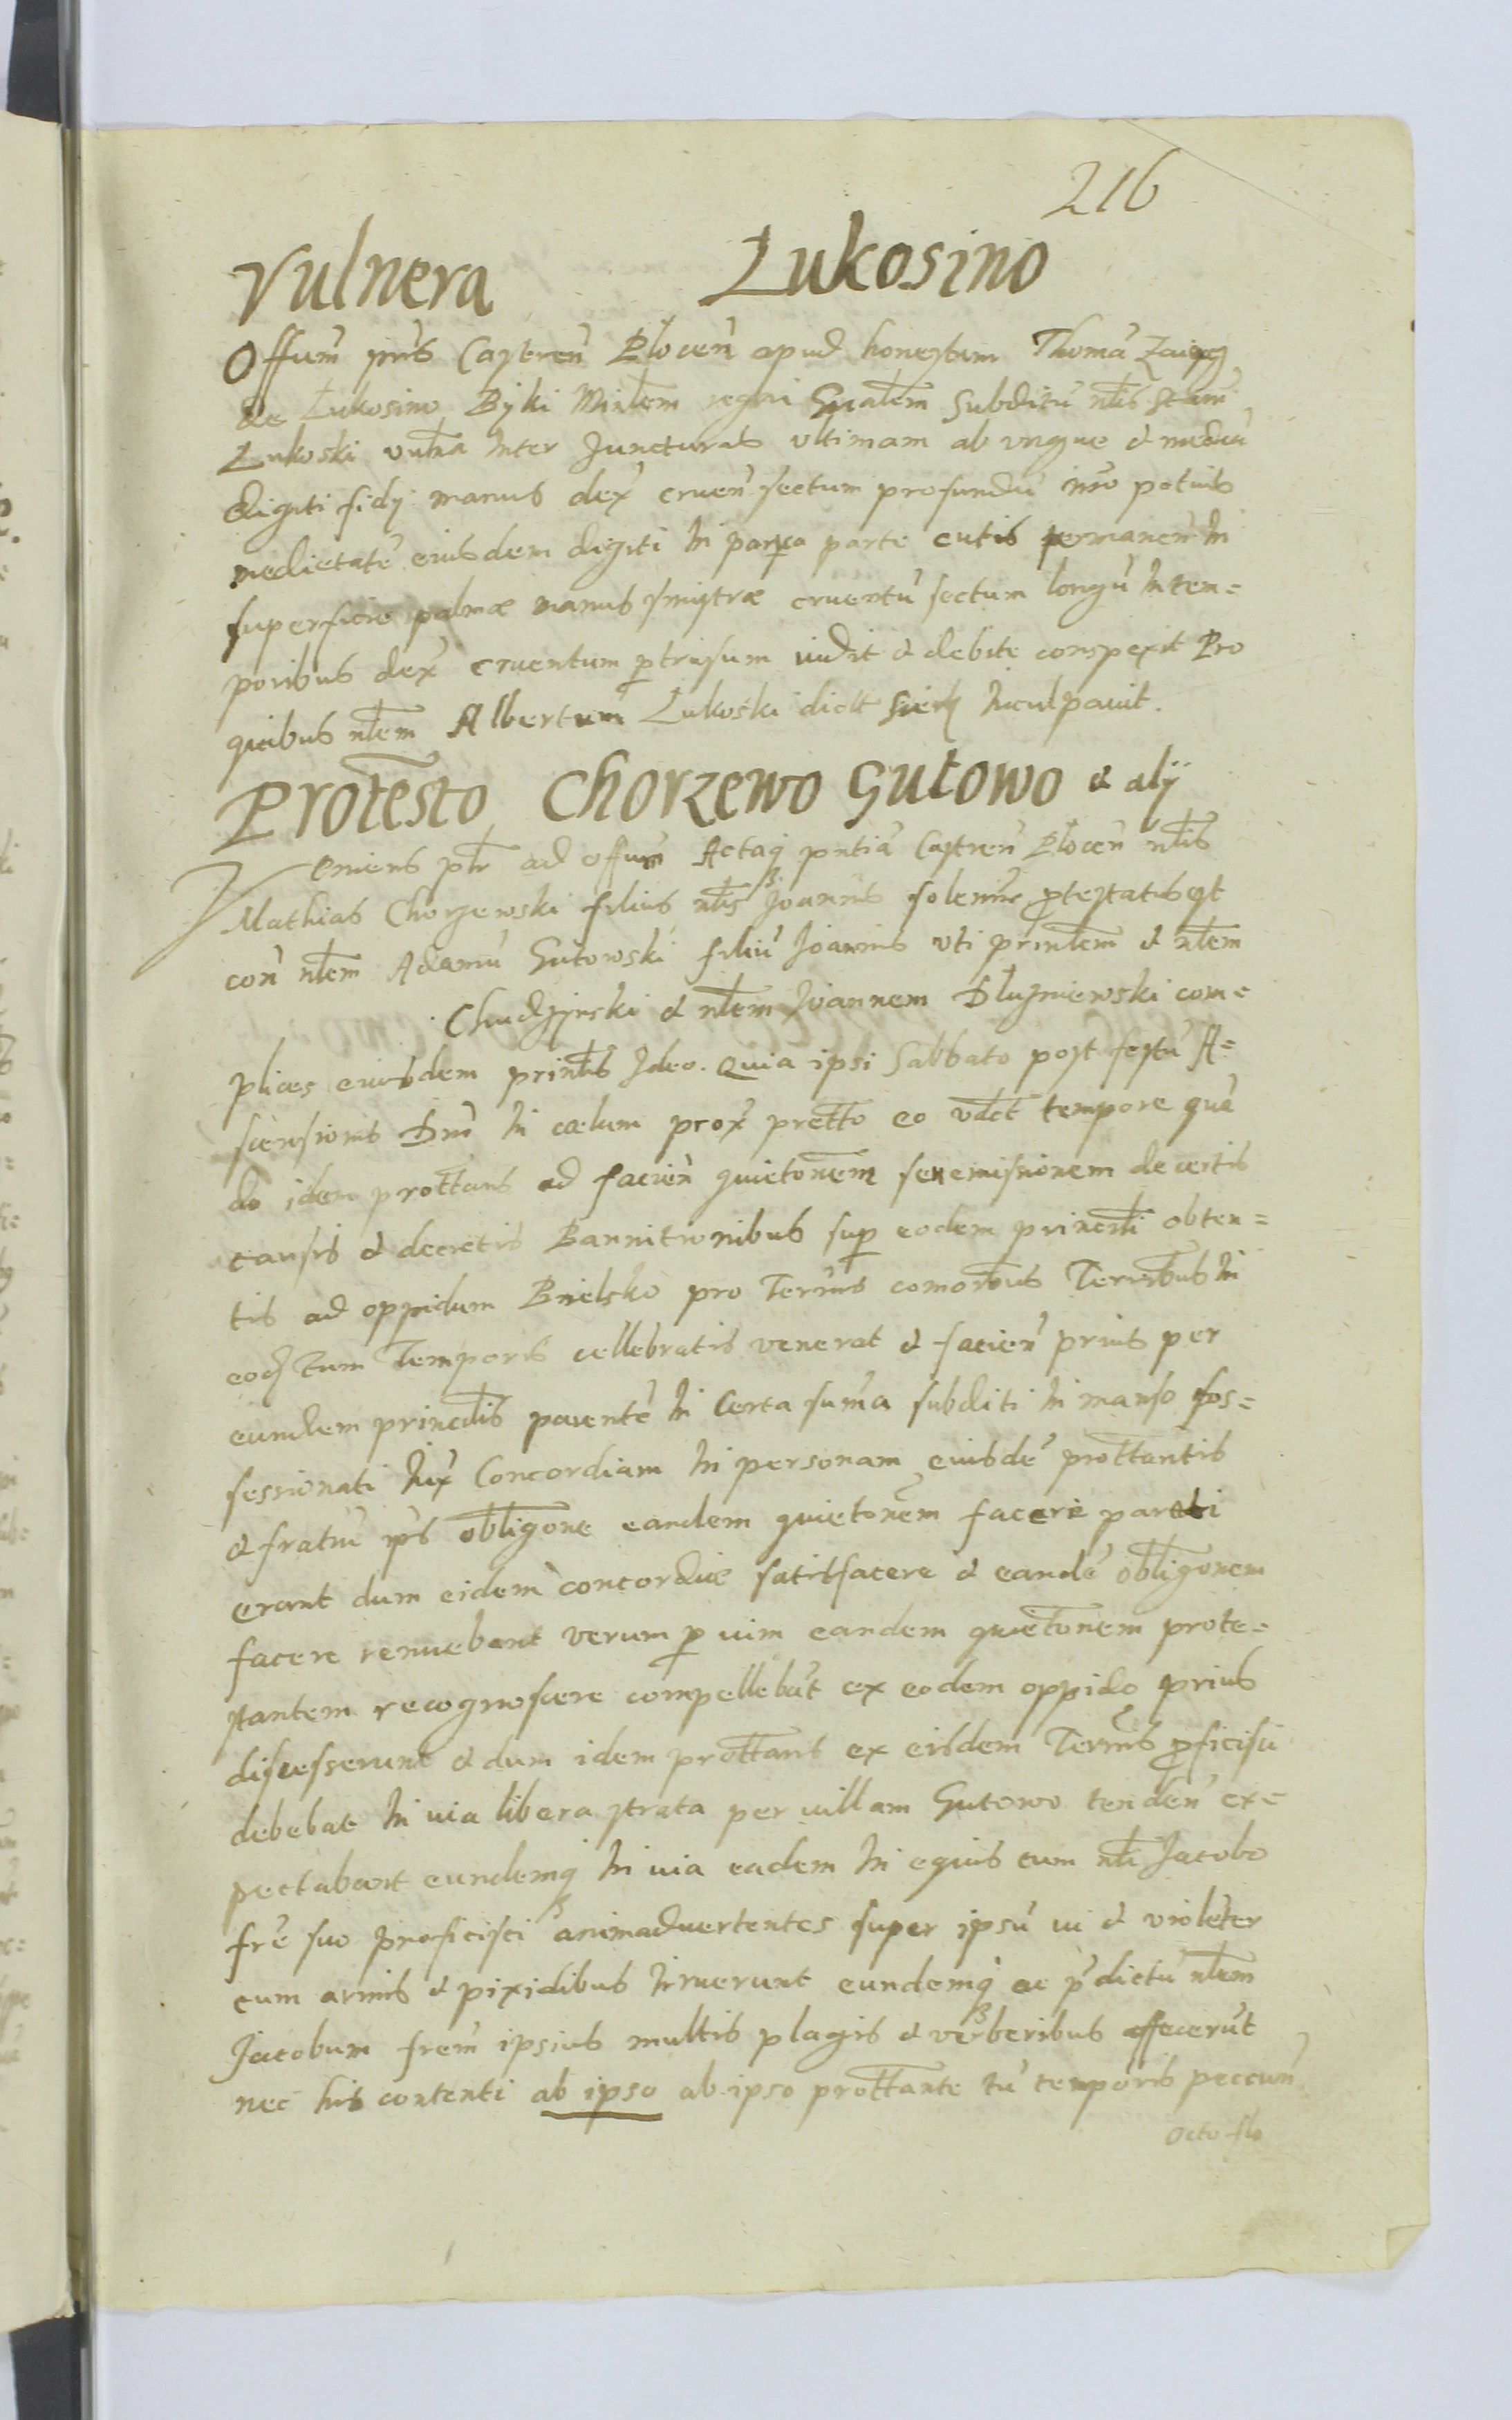 216
Vulnera Lukosino
Offum pns Castren Plocen apud honestum Thomā
de Lukosino Byki Mirlem regni Gnalem Subditū nlis Stani
Lukoski vulna Inter Juncturas ultimam ab ungue & mediā
digiti fidj manus dex cruen sectum profundū imo potius
medietatē eiusdem digiti In parva parte cutis permanen In
superficie palmæ manus sinistræ cruentū sectum longū In tem=
poribus dex cruentum ptrusum vidit & debite conspexit Pro
quibus nlem Albertum Lukoski dict Inculpavit.
Protesto Chorzewo Gutowo & alij
Veniens pltr ad offum Actaq pntia Castren Plocen nlis
Mathias Chorzewski filius nlis Joannis solenne protestatus est
con nlem Adamū Gutowski filiū Joannis uti prinlem & nlem
Chudzijnski & nlem Joannem Dluzniewski com=
plices eiusdem prinlis Ideo. Quia ipsi Sabbato post festū A=
scensionis Dni In cælum prox pretto eo vdct tempore quā
do idem prottans ad facien quietonem seu emissionem de certis
causis & decretis Bannitionibus sup eodem princili obten=
tis ad oppidum Bielsko pro Termis comoribus Terrribus In
eodz tum Temporis cellebratis venerat & facien prius per
eundem princilis parentē In Certa suma subditi In manso pos=
sessionati Jux Concordiam In personam eiusdē prottantis
& fratrū ips obligone eandem quietonem facere parati
erant dum eidem concordiæ satisfacere & eandē obligonem
facere renuebant verum p vim eandem quietonem prote=
stantem recognoscere compellebāt ex eodem oppido prius
discesserunt & dum idem prottans ex eisdem Termis pficisci
debebat In via libera strata per villam Gutowo tenden ex=
pectabant eundemq In via eadem In equis cum nli Jacobo
frē suo proficisci animadvertentes super ipsū vi & violēter
cum armis & pixidibus Irruerunt eundemq ac pdictū nlem
Jacobum frem ipsius multis plagis & verberibus affecerūt
nec his contenti ab ipso ab ipso prottante tū temporis peccun
octo flo